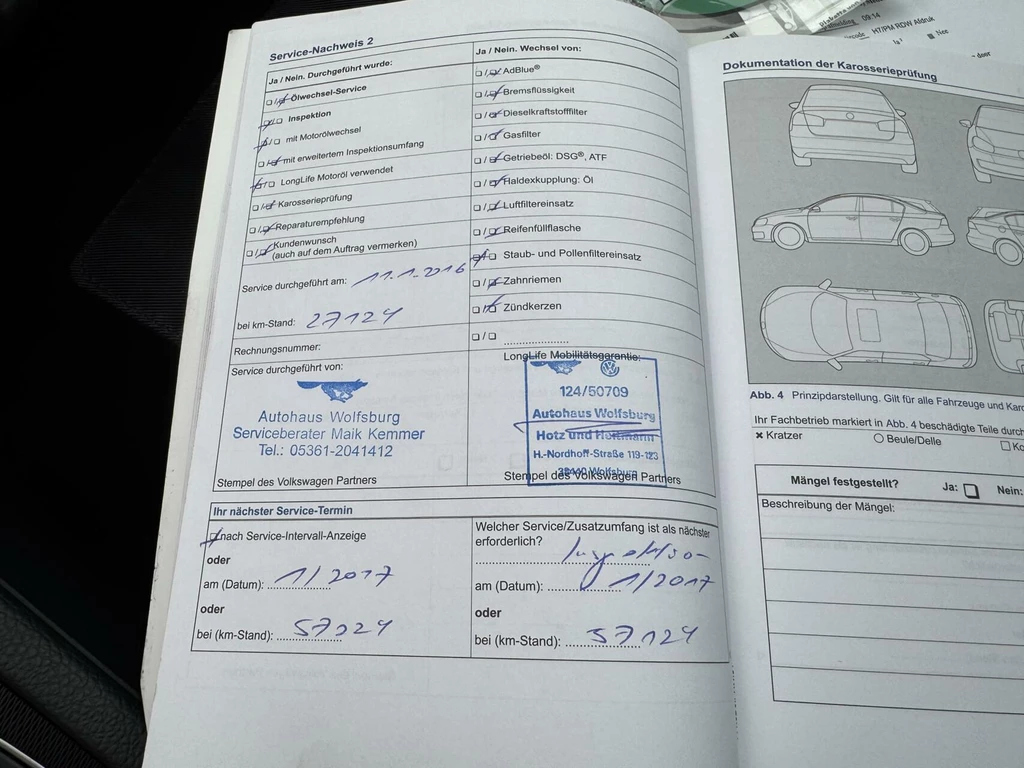 Service-Nachweis 2
Ja / Nein. Durchgeführt wurde:
Ölwechsel-Service
Inspektion
mit Motorölwechsel
mit erweitertem Inspektionsumfang
LongLife Motoröl verwendet
Karosserieprüfung
Reparaturempfehlung
Kundenwunsch
(auch auf dem Auftrag vermerken)
Service durchgeführt am: 11.1.2016
bei km-Stand: 27124
Rechnungsnummer:
Service durchgeführt von:
Autohaus Wolfsburg
Serviceberater Maik Kemmer
Tel.: 05361-2041412
Stempel des Volkswagen Partners
Ja / Nein. Wechsel von:
AdBlue®
Bremsflüssigkeit
Dieselkraftstofffilter
Gasfilter
Getriebeöl: DSG®, ATF
Haldexkupplung: Öl
Luftfiltereinsatz
Reifenfüllflasche
Staub- und Pollenfiltereinsatz
Zahnriemen
Zündkerzen
LongLife Mobilitätsgarantie:
124/50709
Autohaus Wolfsburg
Hotz und Heitmann
H.-Nordhoff-Straße 119-123
Wolfsburg
Stempel des Volkswagen Partners
Ihr nächster Service-Termin
nach Service-Intervall-Anzeige
oder
am (Datum): 1/2017
oder
bei (km-Stand): 57124
Welcher Service/Zusatzumfang ist als nächster
erforderlich?
Inspektion
am (Datum): 1/2017
oder
bei (km-Stand): 57124
09:14
HT/PM RDW Afdruk
Ja
Nee
door
Dokumentation der Karosserieprüfung
Abb. 4 Prinzipdarstellung. Gilt für alle Fahrzeuge und
Ihr Fachbetrieb markiert in Abb. 4 beschädigte Teile durch
x Kratzer
Beule/Delle
Mängel festgestellt?
Ja:
Nein:
Beschreibung der Mängel: